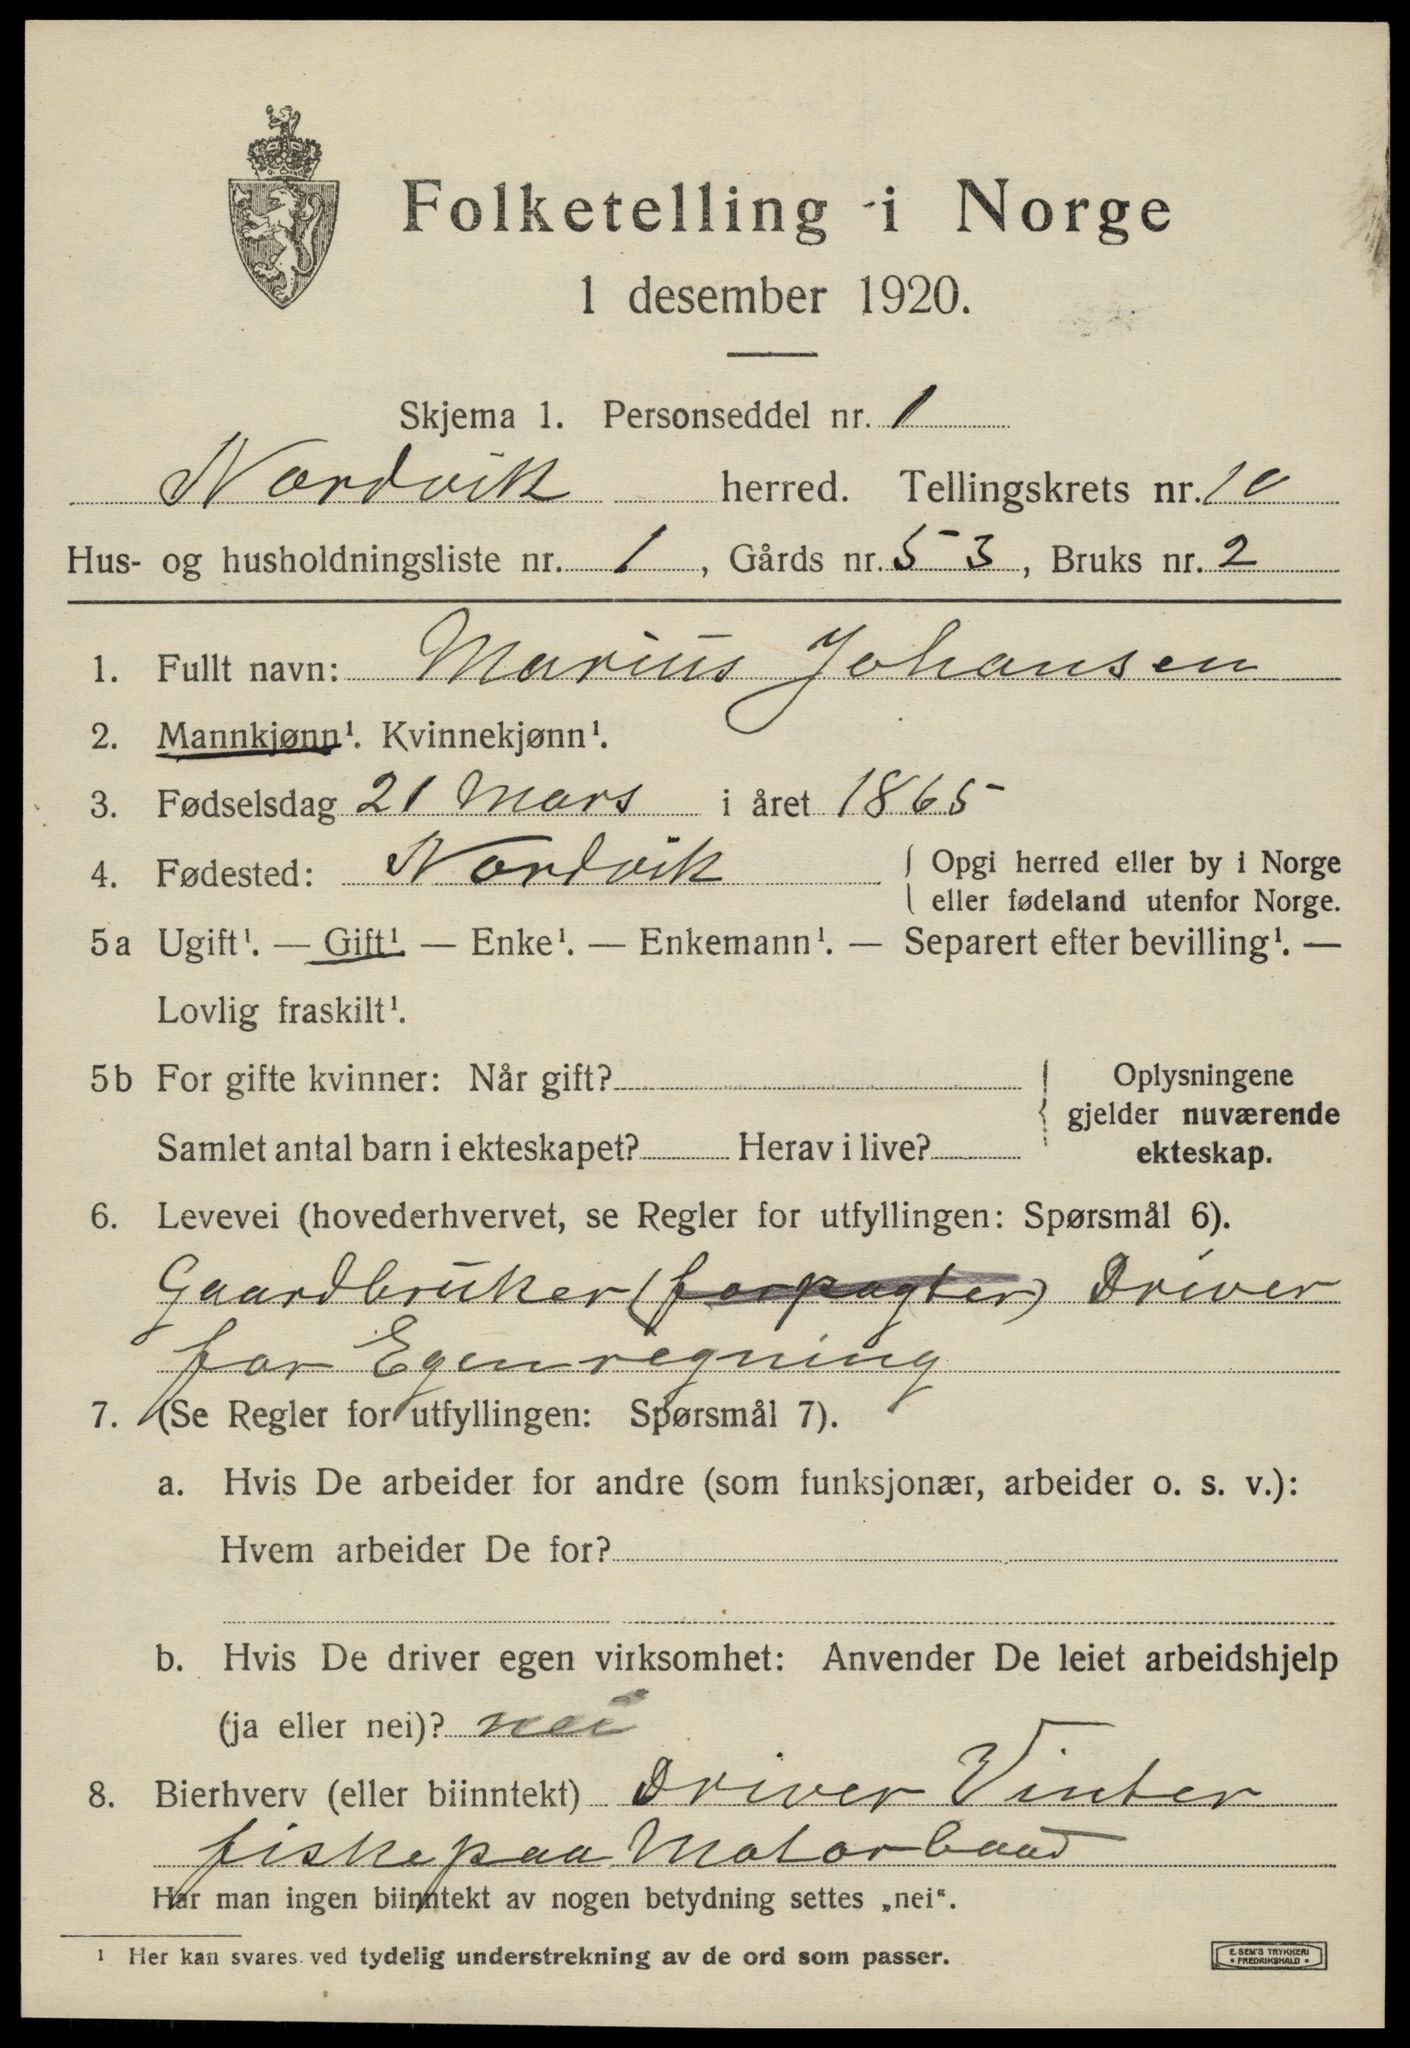 Folketelling i Norge
1 desember 1920.
Skjema 1. Personseddel nr. 1
Nordvik herred. Tellingskrets nr. 10
Hus- og husholdningsliste nr. 1, Gårds nr. 53, Bruks nr. 2
1. Fullt navn: Marius Johansen
2. Mannkjønn¹. Kvinnekjønn¹.
3. Fødselsdag 21 Mars i året 1865
4. Fødested: Nordvik { Opgi herred eller by i Norge
eller fødeland utenfor Norge.
5a Ugift¹. — Gift¹. — Enke¹. — Enkemann¹. — Separert efter bevilling¹. —
Lovlig fraskilt¹.
5b For gifte kvinner: Når gift?
Samlet antal barn i ekteskapet? Herav i live?
{ Oplysningene
gjelder nuværende
ekteskap.
6. Levevei (hovederhvervet, se Regler for utfyllingen: Spørsmål 6).
Gaardbruker (forpagter) Driver
for Egenregning
7. (Se Regler for utfyllingen: Spørsmål 7).
a. Hvis De arbeider for andre (som funksjonær, arbeider o. s. v.):
Hvem arbeider De for?
b. Hvis De driver egen virksomhet: Anvender De leiet arbeidshjelp
(ja eller nei)? nei
8. Bierhverv (eller biinntekt) Driver Vinter
fiske paa Motorbaad
Har man ingen biinntekt av nogen betydning settes „nei“.
¹ Her kan svares ved tydelig understrekning av de ord som passer.
E. SEM'S TRYKKERI
• FREDRIKSHALD •